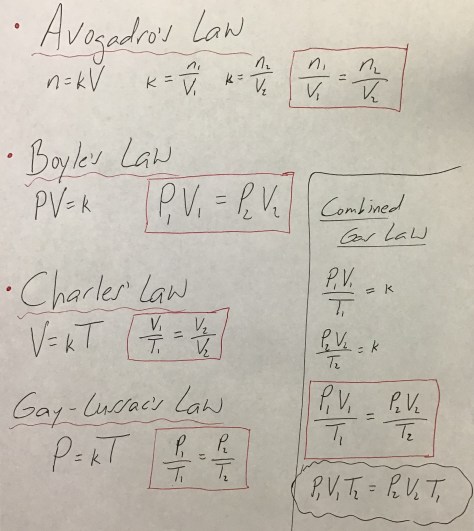 • Avogadro's Law
n=kV k = n₁/V₁ k = n₂/V₂ n₁/V₁ = n₂/V₂
• Boyle's Law
PV=k P₁V₁ = P₂V₂
• Charles' Law
V=kT V₁/T₁ = V₂/V₂
Gay-Lussac's Law
P=kT P₁/T₁ = P₂/T₂
Combined
Gas Law
P₁V₁/T₁ = k
P₂V₂/T₂ = k
P₁V₁/T₁ = P₂V₂/T₂
P₁V₁T₂ = P₂V₂T₁